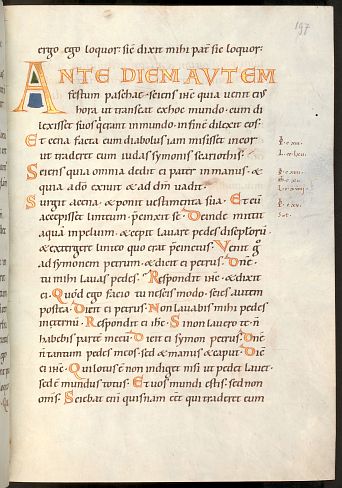 197
ergo ego loquor: sic̄ dixit mihi pat̄ sic loquor:
ANTE DIEM AVTEM
festum paschae. sciens ihc̄ quia venit eiꝰ
hora ut transeat exhoc mundo. cum di
lexisset suos q̄erant inmundo. infinē dilexit eos.
Et cena facta cum diabolus iam misisset incor
ut traderet eum iudas symonis scariothis.
Sciens quia omnia dedit ei pater inmanus. &
quia adō exivit & ad dm̄ vadit.
Surgit acena. & ponit vestimenta sua. Et cū
accepisset linteum. p̄cinxit se. Deinde mittit
aquā inpelvim. & cepit lavare pedes discipłorū
& extergere linteo quo erat p̄cinctus. Venit g̊
ad symonem petrum. & dicit ei petrus. Dn̄e
tu mihi lavas pedes. Respondit ihc̄ & dixit
ei. Quod ego facio tu nescis modo. scies autem
postea. Dicit ei petrus. Non lavabis mihi pedes
inęternū. Respondit ei ihc̄. Si non lavero te. n̄
habebis partē mecū. Dicit ei symon petrus. Dn̄e
n̄ tantum pedes meos. sed & manus & caput. Dicit
ei ihc̄. Qui lotus ē non indiget nisi ut pedes lavet.
sed ē mundus totus. Et vos mundi estis. sed non
om̄s. Sciebat enī quisnam eēt qui traderet eum